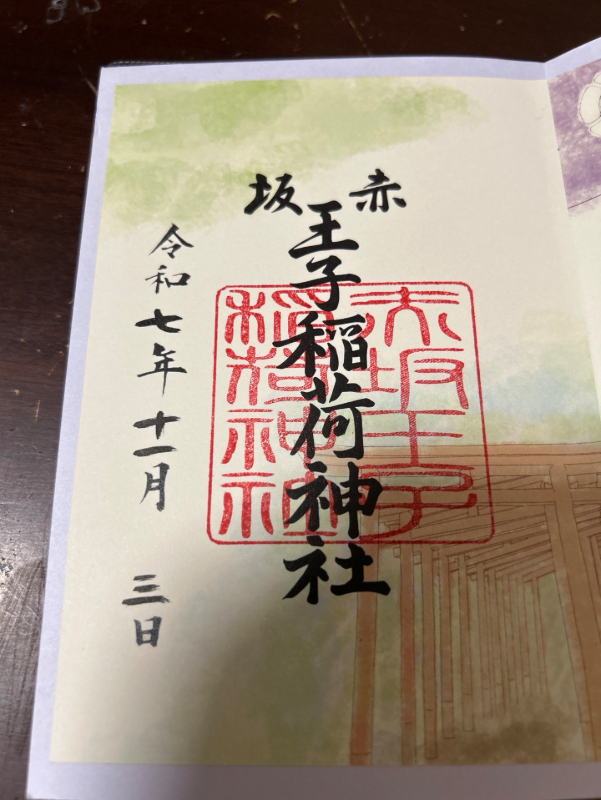 赤坂
王子稲荷神社
令和七年十一月三日
赤坂王子
稲荷神社